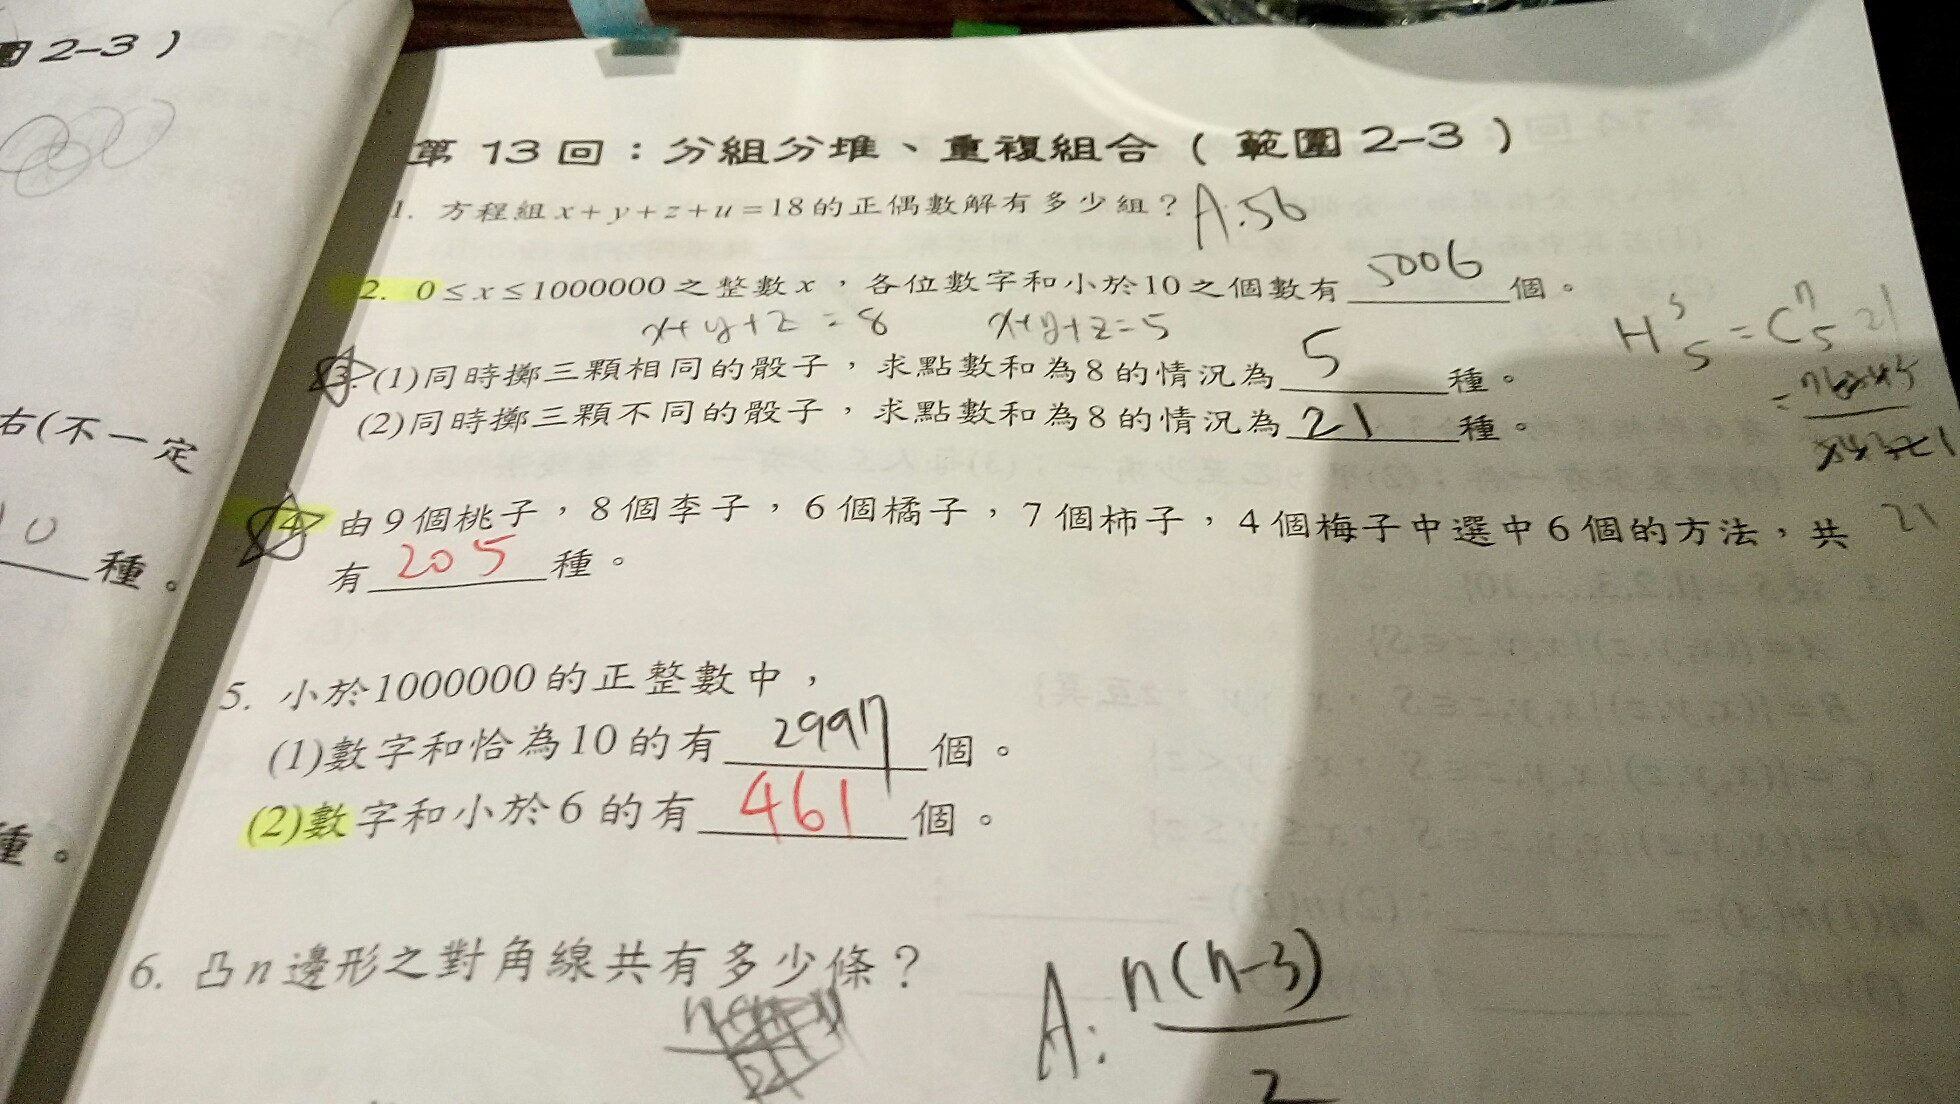 圍2-3)
第13回：分組分堆、重複組合(範圍2-3)
1. 方程組x+y+z+u=18的正偶數解有多少組？ A:56
2. 0≤x≤1000000之整數x，各位數字和小於10之個數有 5006 個。
x+y+z=8 x+y+z=5
3. (1)同時擲三顆相同的骰子，求點數和為8的情況為 5 種。
(2)同時擲三顆不同的骰子，求點數和為8的情況為 21 種。
H³₅=C⁷₅ 21
右(不一定
4. 由9個桃子，8個李子，6個橘子，7個柿子，4個梅子中選中6個的方法，共 21
有 205 種。
10 種。
5. 小於1000000的正整數中，
(1)數字和恰為10的有 2997 個。
(2)數字和小於6的有 461 個。
種。
6. 凸n邊形之對角線共有多少條？
A: n(n-3)
2